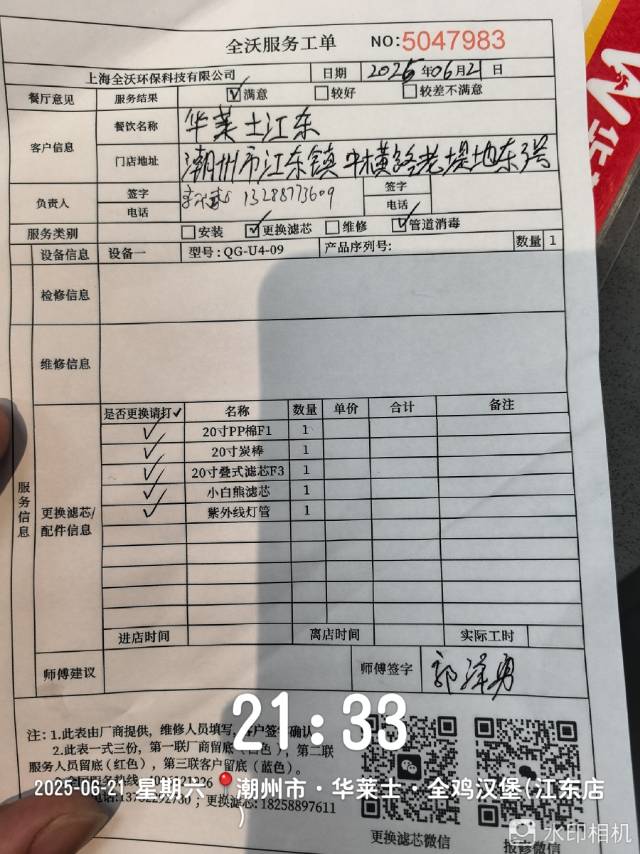 全沃服务工单 NO:5047983
上海全沃环保科技有限公司 日期 2025年06月21日
餐厅意见 服务结果 ☑满意 □较好 □较差不满意
客户信息 餐饮名称 华莱士江东
门店地址 潮州市江东镇中横路老堤地东3号
负责人 签字 电话 13288773609 签字 电话
服务类别 □安装 ☑更换滤芯 □维修 ☑管道消毒
服务信息
设备信息 设备一 型号:QG-U4-09 产品序列号: 数量 1
检修信息
维修信息
更换滤芯/配件信息
是否更换请打✓ 名称 数量 单价 合计 备注
✓ 20寸PP棉F1 1
✓ 20寸炭棒 1
✓ 20寸叠式滤芯F3 1
✓ 小白熊滤芯 1
✓ 紫外线灯管 1
进店时间 离店时间 实际工时
师傅建议 师傅签字 郭泽勇
注: 1.此表由厂商提供，维修人员填写，客户签字确认
2.此表一式三份，第一联厂商留底（白色），第二联
服务人员留底(红色)，第三联客户留底（蓝色）。
更换滤芯:18258897611
更换滤芯微信 报修微信
21:33
2025-06-21 星期六 潮州市·华莱士·全鸡汉堡(江东店
)
水印相机
华